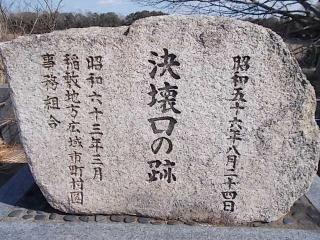 昭和五十六年八月二十四日
決壊口の跡
昭和六十三年三月
稲敷地方広域市町村圏
事務組合